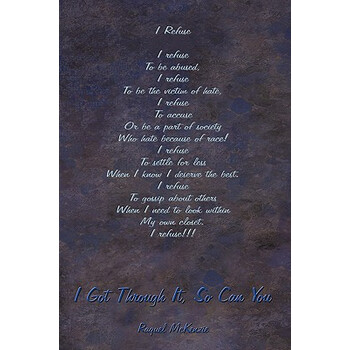 I Refuse
I refuse
To be abused,
I refuse
To be the victim of hate,
I refuse
To accuse
Or be a part of society
Who hate because of race!
I refuse
To settle for less
When I know I deserve the best.
I refuse
To gossip about others
When I need to look within
My own closet.
I refuse!!!
I Got Through It, So Can You
Raquel McKenzie